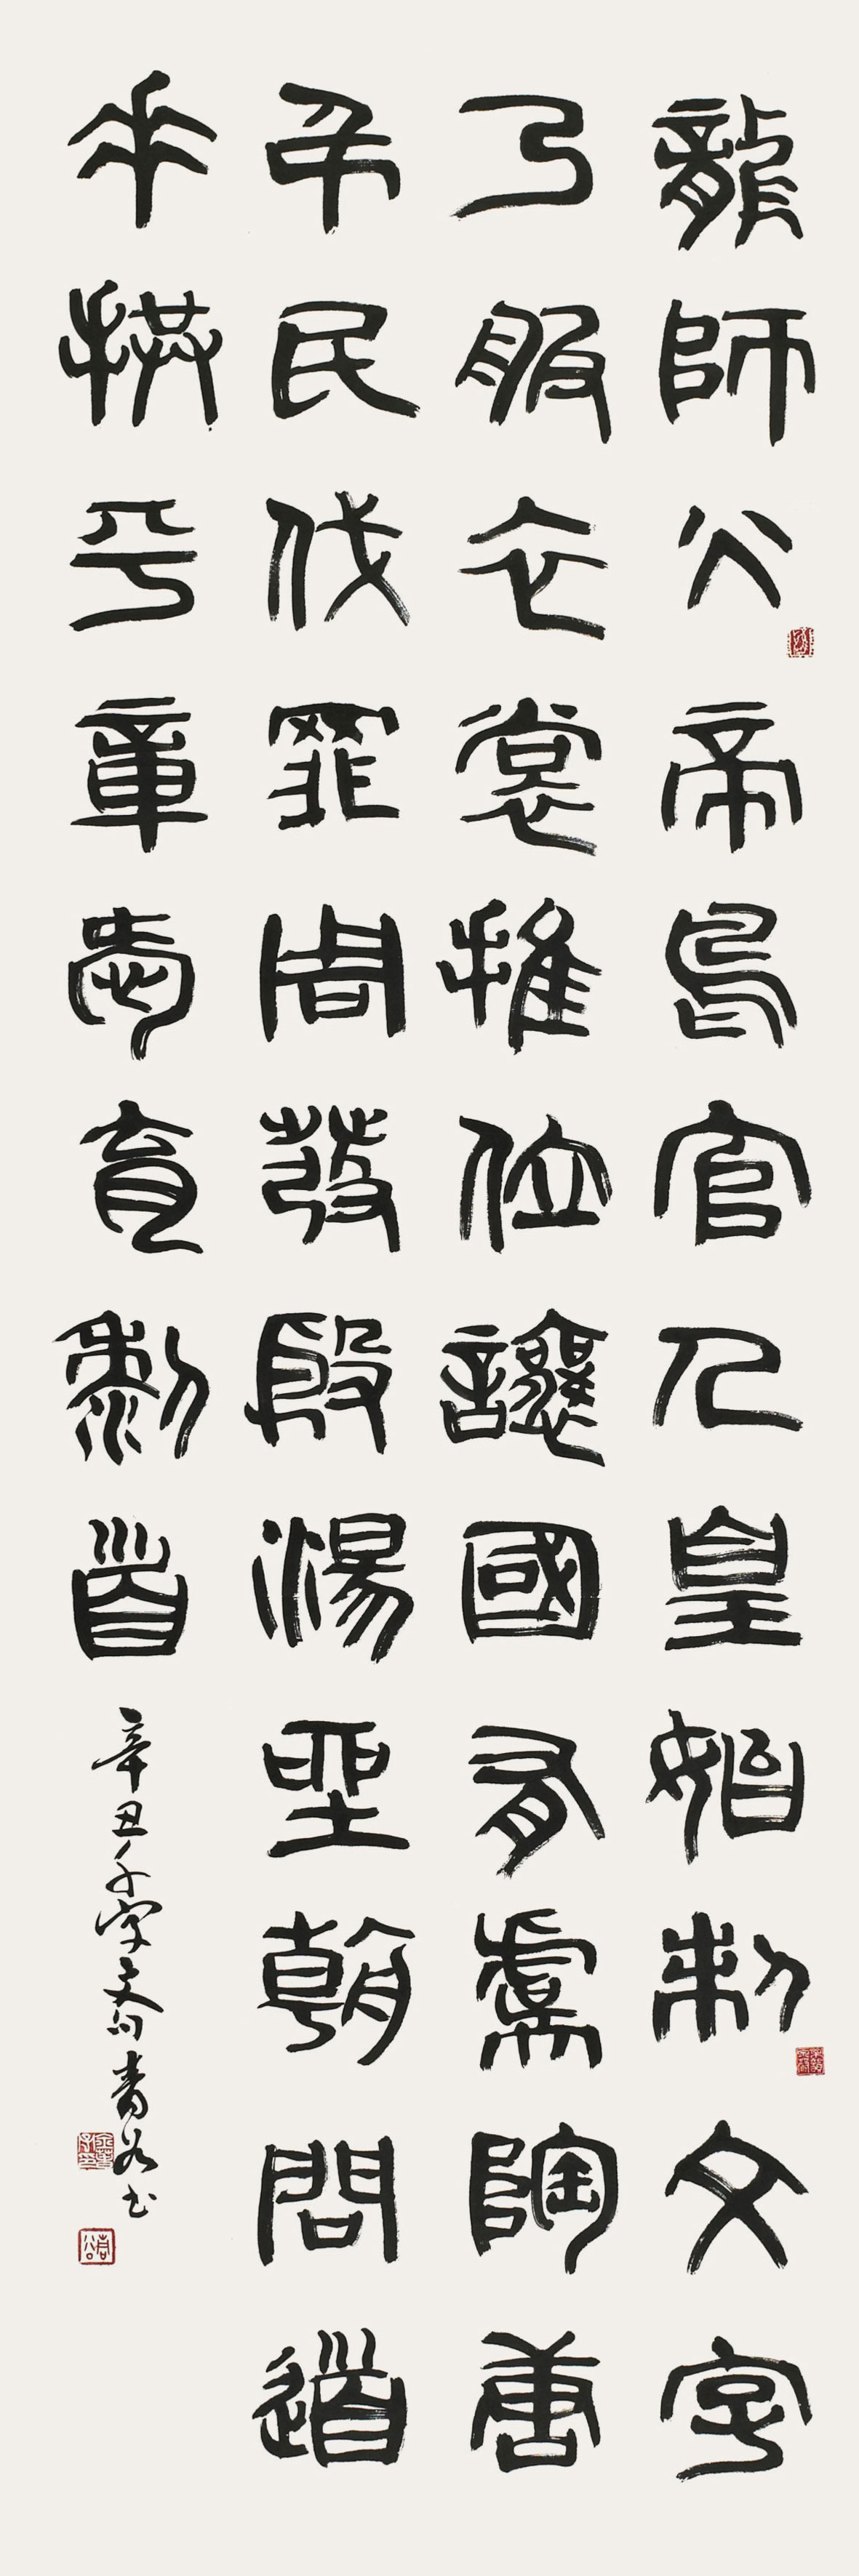 龍師火帝鳥官人皇始制文字
乃服衣裳推位讓國有虞陶唐
弔民伐罪周發殷湯坐朝問道
垂拱平章愛育黎首
辛丑千字文句